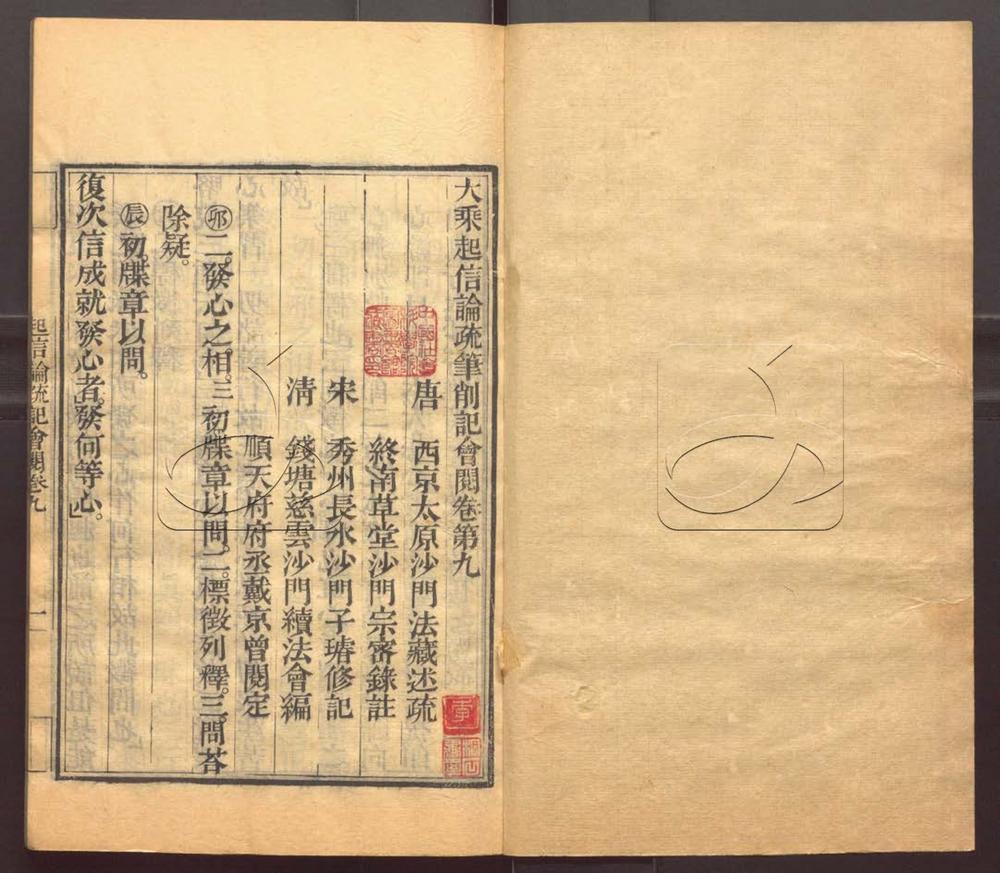 大乘起信論疏筆削記會閱卷第九
唐 西京太原沙門法藏述疏
終南草堂沙門宗密錄註
宋 秀州長水沙門子璿修記
清 錢塘慈雲沙門續法會編
順天府府丞戴京曾閱定
㊞二。發心之相。三 初牒章以問。二。標徵列釋。三。問荅
除疑。
辰初。牒章以問。
復次信成就發心者。發何等心。」
起信論疏記會閱卷九 一